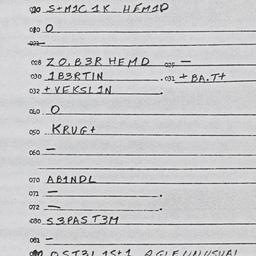 010 S+M1C 1K HEM1D
020 O
021
028 ZO.B3R HEMD 029 —
030 1B3RTIN . 031 +BA.T+
032 +VEKSL1N .
040 O
050 KRUG+
060 —
070 AB1NDL
071 — .
072 — .
080 S3.PAST3M
081 —